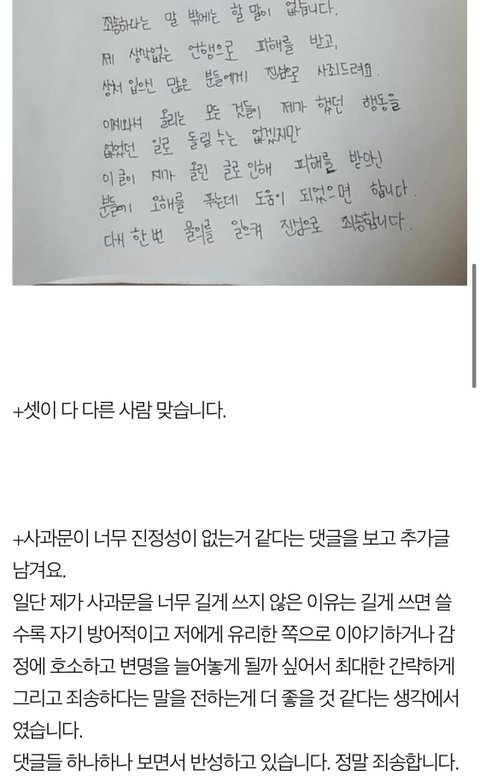 죄송하다는 말 밖에는 할 말이 없습니다.
제 생각없는 언행으로 피해를 받고,
상처 입으신 많은 분들에게 진심으로 사죄드려요.
이제와서 올리는 모든 것들이 제가 했던 행동을
없었던 일로 돌릴 수는 없겠지만
이 글이 제가 올린 글로 인해 피해를 받으신
분들께 오해를 푸는데 도움이 되었으면 합니다.
다시 한번 물의를 일으켜 진심으로 죄송합니다.
+셋이 다 다른 사람 맞습니다.
+사과문이 너무 진정성이 없는거 같다는 댓글을 보고 추가글
남겨요.
일단 제가 사과문을 너무 길게 쓰지 않은 이유는 길게 쓰면 쓸
수록 자기 방어적이고 저에게 유리한 쪽으로 이야기하거나 감
정에 호소하고 변명을 늘어놓게 될까 싶어서 최대한 간략하게
그리고 죄송하다는 말을 전하는게 더 좋을 것 같다는 생각에서
였습니다.
댓글들 하나하나 보면서 반성하고 있습니다. 정말 죄송합니다.